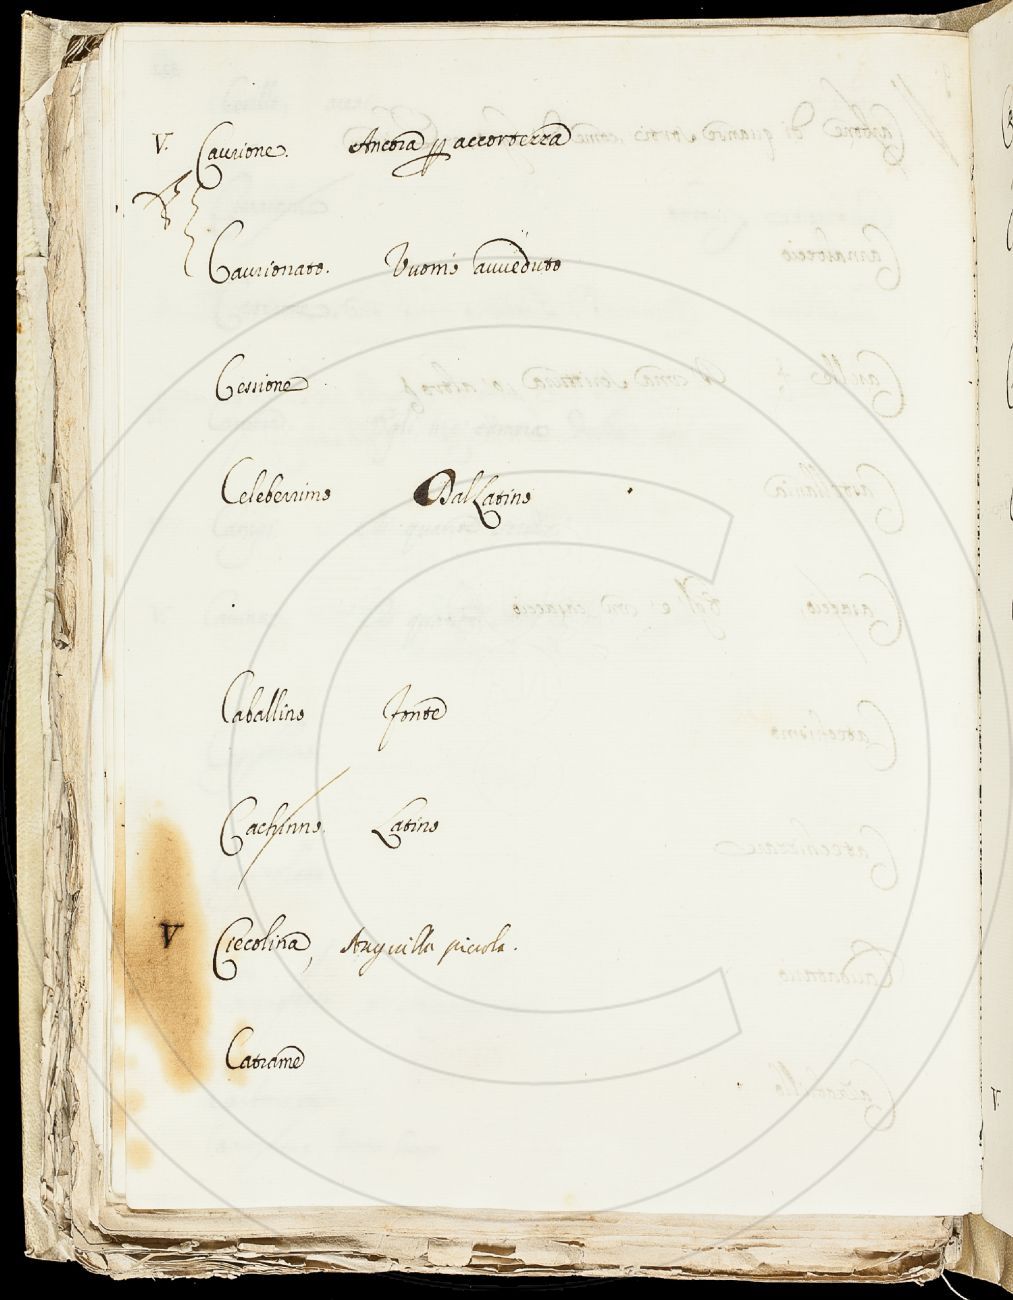 V. Cauzione. Ancora p accortezza
Cauzionato. Vuomo avveduto
Cessione
Celeberrimo Dal Latino
Caballino fonte
Cachinno. Latino
V Ciecolina, Anguilla piccola.
Catrame